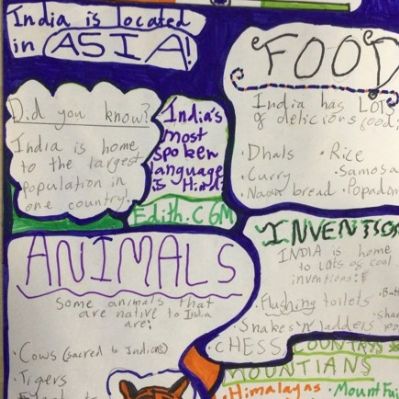 India is located
in ASIA!
FOOD
India has LOTS
of delicious food:
· Dhals
· Rice
· Curry
· Samosa
· Naan bread
· Popadom
Did you know?
India is home
to the largest
population in
one country!
India's
most
spoken
language
is Hindi
Edith.C 6M
ANIMALS
Some animals that
are native to India
are:
· Cows (sacred to Indians)
· Tigers
INVENTIO
INDIA is home
to lots of cool
inventions:
· Flushing toilets
· Snakes 'n' ladders
CHESS
COUNTRY
MOUNTIANS
· Himalayas
· Mount Fai